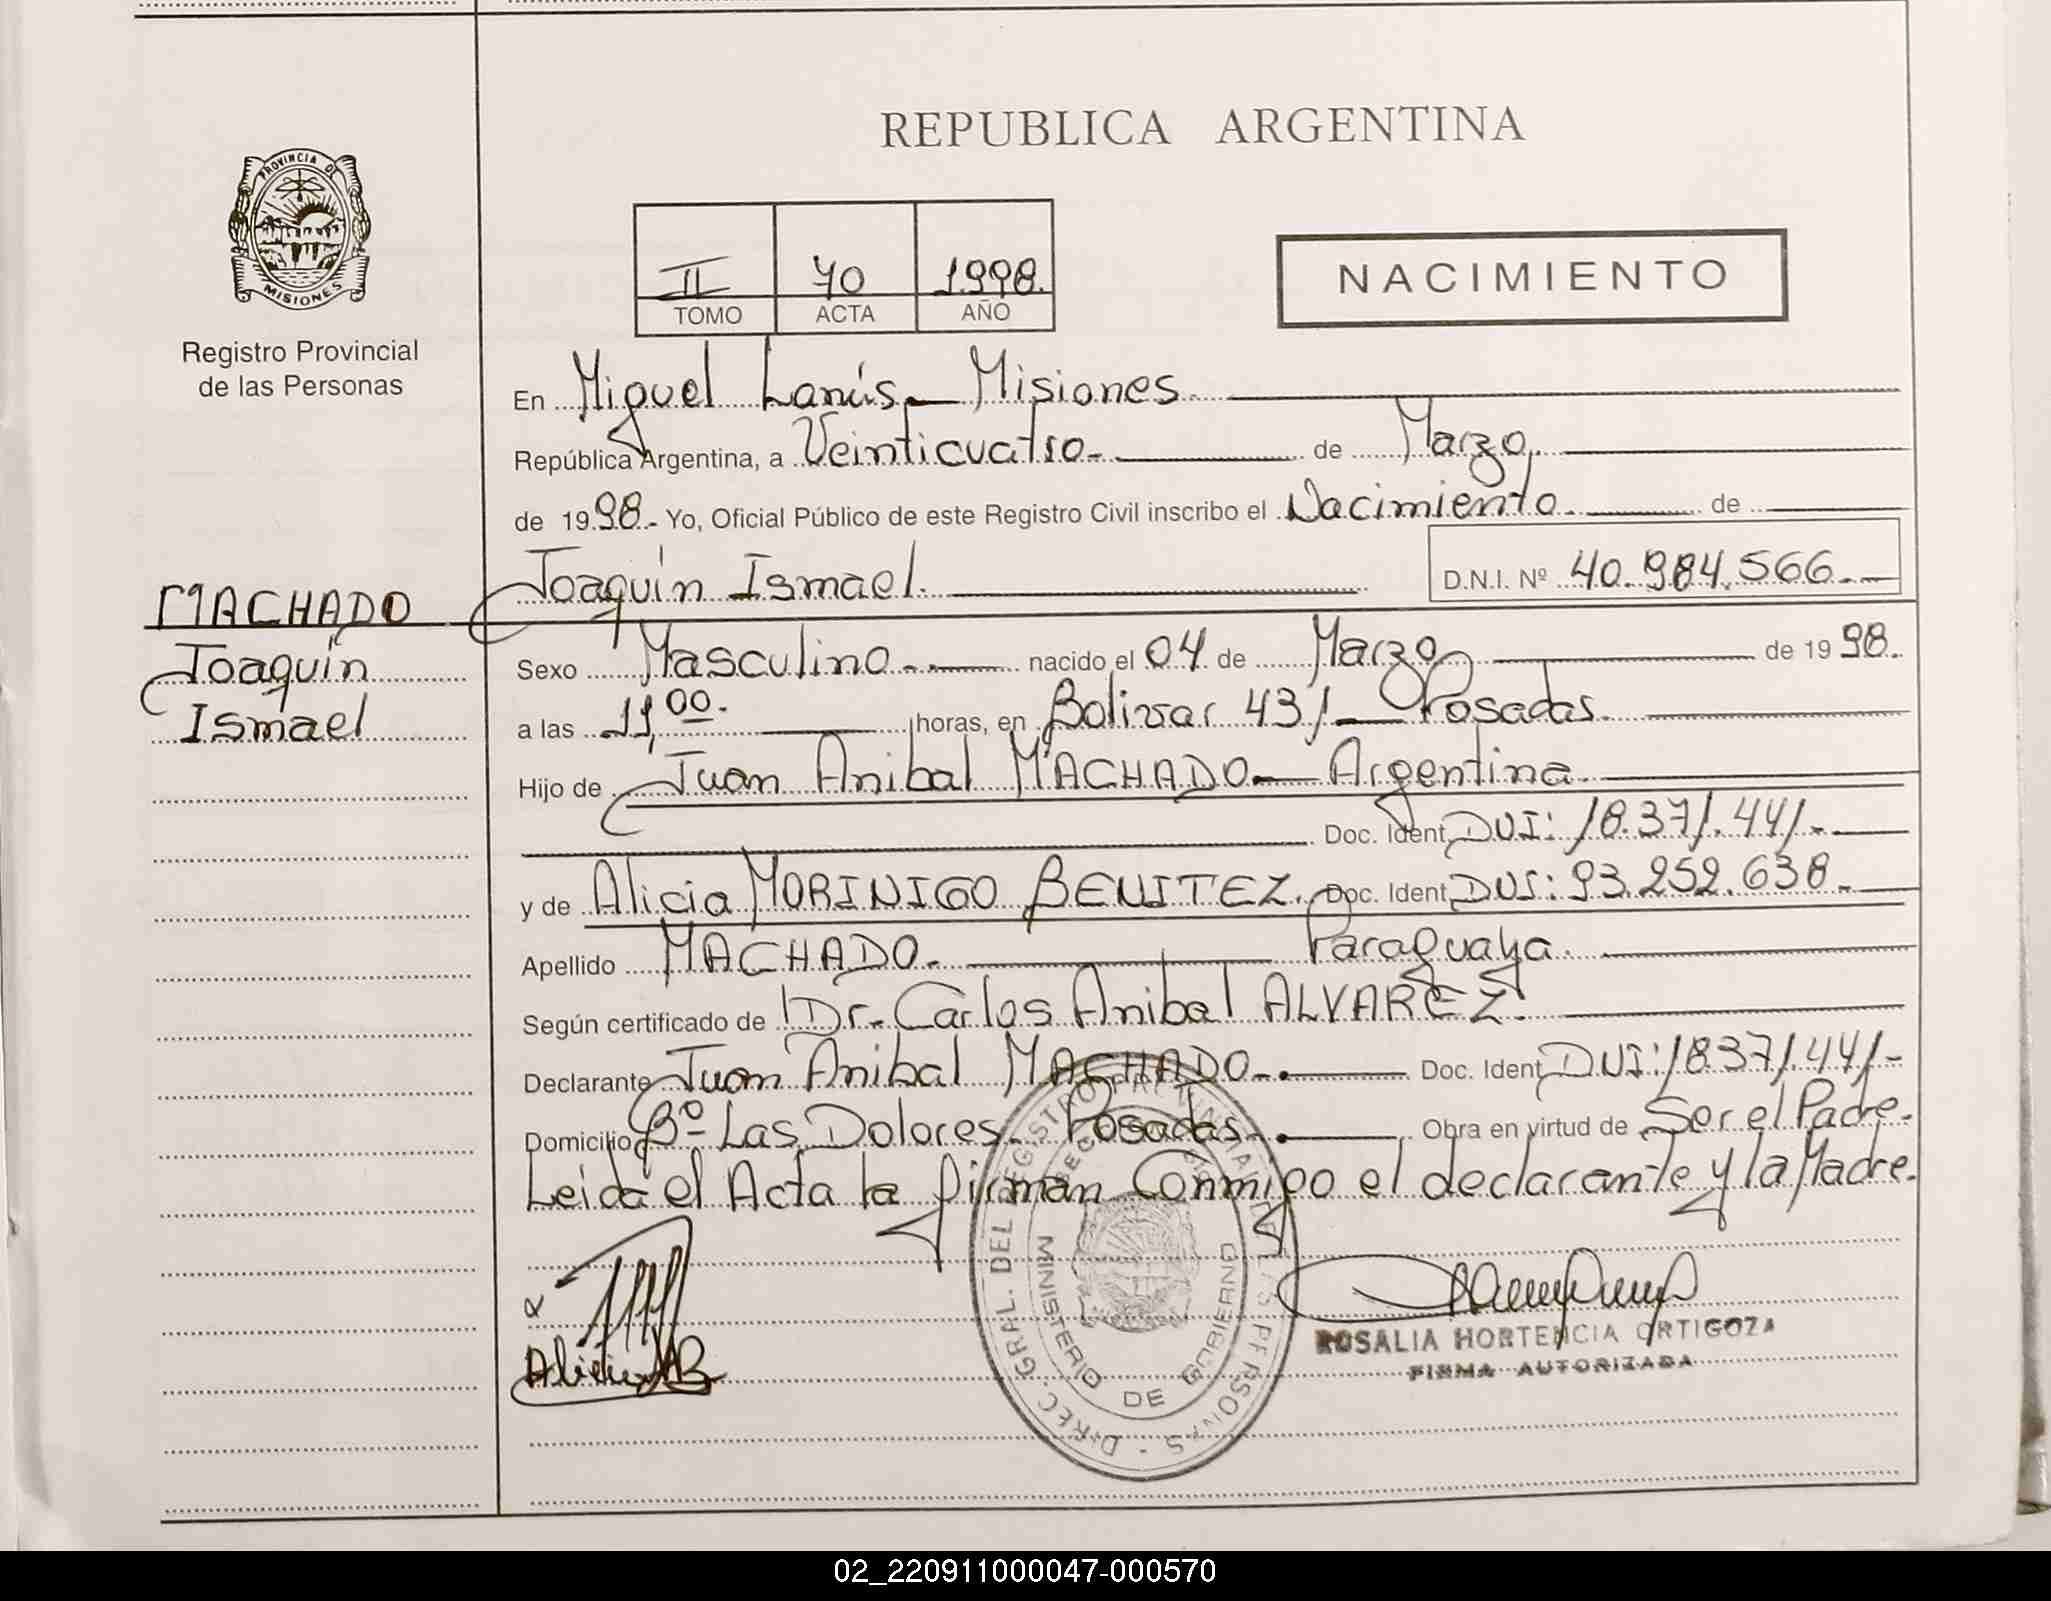 REPUBLICA ARGENTINA
PROVINCIA DE MISIONES
Registro Provincial
de las Personas
II 40 1.998.
TOMO ACTA AÑO
NACIMIENTO
En Miguel Lanús - Misiones.
República Argentina, a Veinticuatro - de Marzo.
de 1998.- Yo, Oficial Público de este Registro Civil inscribo el Nacimiento. de
Joaquín Ismael. D.N.I. Nº 40.984.566.-
MACHADO
Joaquín
Ismael
Sexo Masculino.- nacido el 04 de Marzo de 1998.
a las 11,00. horas, en Bolivar 431 - Posadas.
Hijo de Juan Anibal MACHADO - Argentina.
Doc. Ident. DNI: 18.371.441.-
y de Alicia MORINIGO BENITEZ. Doc. Ident. DNI: 93.252.638.-
Apellido MACHADO. Paraguaya.
Según certificado de Dr. Carlos Anibal ALVAREZ.
Declarante Juan Anibal MACHADO.- Doc. Ident. DNI: 18.371.441.-
Domicilio Bº Las Dolores. Posadas.- Obra en virtud de Ser el Padre.
Leida el Acta la firman Conmigo el declarante y la Madre.
DIREC. GRAL. DEL REGISTRO PROVINCIAL DE LAS PERSONAS
MINISTERIO DE GOBIERNO
ROSALIA HORTENCIA ORTIGOZA
FIRMA AUTORIZADA
02_220911000047-000570